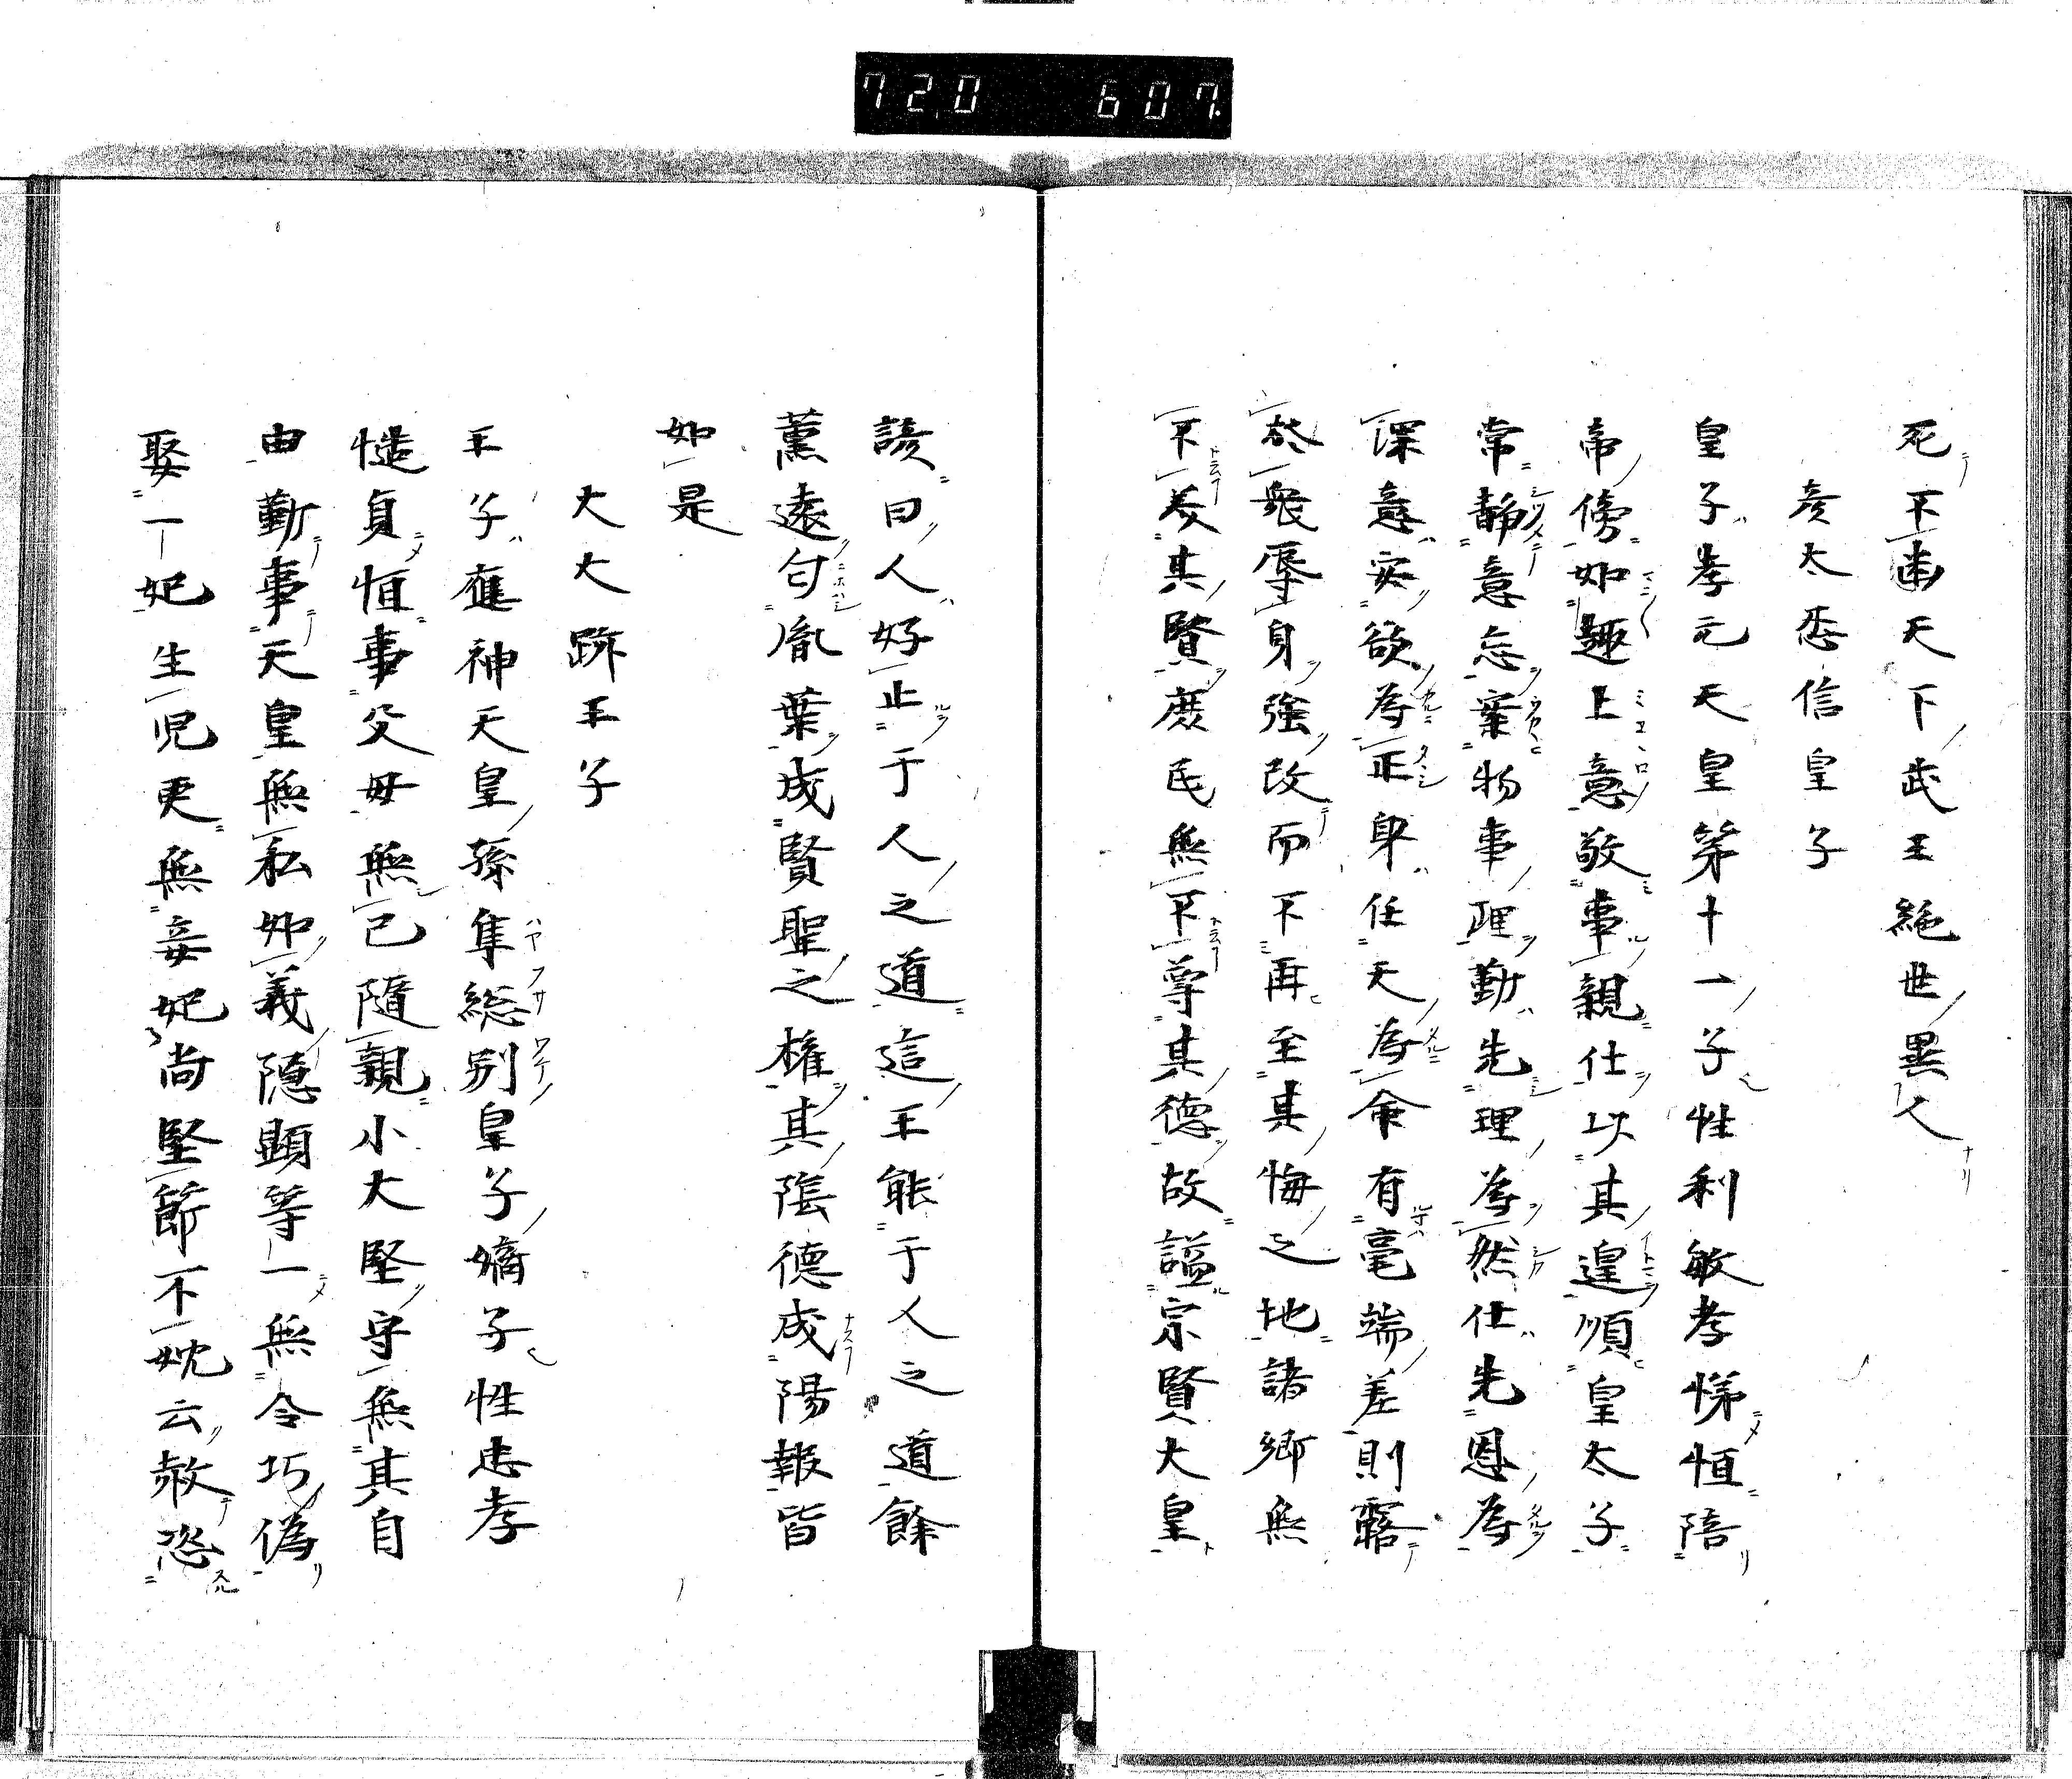 720 607
死不遺天下武王絶世異人
彦太忍信皇子
皇子孝元天皇第十一子性利敏孝悌恒陪
帝傍如趣上意敬事親仕以其遑順皇太子
常静意忘案物事理勤先理為然仕先恩為
深意安欲為正身任天為命有毫端差則露
於衆辱身強改而不再至其悔之地諸郷無
不羨其賢庶民無不尊其徳故謚宗賢大皇
諺曰人好止于人之道這王能于人之道餘
薫遠匂胤葉成賢聖之権其陰徳成陽報皆
如是
大大跡王子
王子應神天皇孫隼総別皇子嫡子性忠孝
慥貞恒事父母無己隨親小大堅守無其自
由勤事天皇無私如義隠顕等一無令巧偽
娶一妃生児更無妾妃尚堅節不妉云赦恣